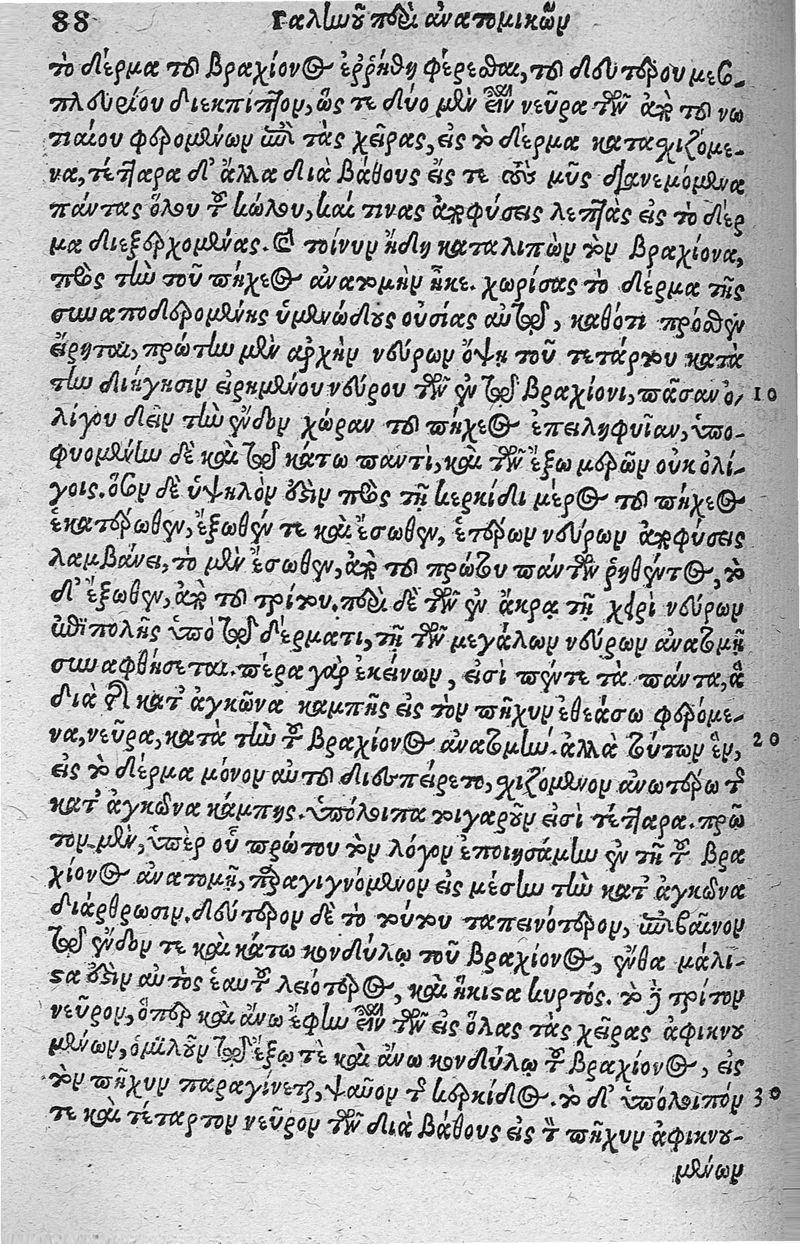 88 Γαληνοῦ περὶ ἀνατομικῶν
τὸ δέρμα τοῦ βραχίονος ἐῤῥήθη φέρεσθαι, τοῦ δευτέρου μεσο-
πλευρίου διεκπίπτον, ὥς τε δύο μὲν εἶναι νεῦρα τῶν ἀπὸ τοῦ νω
τιαίου φερομένων ἐπὶ τὰς χεῖρας, εἰς τὸ δέρμα κατασχιζόμε-
να, τέτταρα δ' ἄλλα διὰ βάθους εἴς τε τοὺς μῦς διανεμόμενα
πάντας ὅλου τοῦ κώλου, καί τινας ἀποφύσεις λεπτὰς εἰς τὸ δέρ
μα διεξερχομένας. σὺ τοίνυν ἤδη καταλιπὼν τὸν βραχίονα,
πρὸς τὴν τοῦ πήχεος ἀνατομὴν ἧκε. χωρίσας τὸ δέρμα τῆς
συναποδερομένης ὑμενώδους οὐσίας αὐτῷ, καθότι πρόσθεν
εἴρηται, πρώτην μὲν ἀρχὴν νεύρων ὄψῃ τοῦ τετάρτου κατὰ
τὴν διήγησιν εἰρημένου νεύρου τῶν ἐν τῷ βραχίονι, πᾶσαν ὀ- 10
λίγου δεῖν τὴν ἔνδον χώραν τοῦ πήχεος ἐπειληφυῖαν, ὑπο-
φυομένην δὲ καὶ τῷ κάτω παντὶ, καὶ τῶν ἔξω μερῶν οὐκ ὀλί-
γοις. ὅσον δὲ ὑψηλὸν ἐστὶν πρὸς τῇ κερκίδι μέρος τοῦ πήχεος
ἑκατέρωθεν, ἔξωθέν τε καὶ ἔσωθεν, ἑτέρων νεύρων ἀποφύσεις
λαμβάνει, τὸ μὲν ἔσωθεν, ἀπὸ τοῦ πρώτου πάντων ῥηθέντος, τὸ
δ' ἔξωθεν, ἀπὸ τοῦ τρίτου. περὶ δὲ τῶν ἐν ἄκρᾳ τῇ χειρὶ νεύρων
ἐπιπολῆς ὑπὸ τῷ δέρματι, τῇ τῶν μεγάλων νεύρων ἀνατομῇ
συναφθήσεται. πέρα γὰρ ἐκείνων, εἰσὶ πέντε τὰ πάντα, ἃ
διὰ τῆς κατ' ἀγκῶνα καμπῆς εἰς τὸν πῆχυν ἐθεάσω φερόμε-
να, νεῦρα, κατὰ τὴν τοῦ βραχίονος ἀνατομήν. ἀλλὰ τούτων ἓν, 20
εἰς τὸ δέρμα μόνον αὐτοῦ διεσπείρετο, σχιζόμενον ἀνωτέρω τῆς
κατ' ἀγκῶνα κάμπης. ὑπόλοιπα τοιγαροῦν εἰσὶ τέτταρα. πρῶ
τον μὲν, ὑπὲρ οὗ πρώτου τὸν λόγον ἐποιησάμην ἐν τῇ τοῦ βρα
χίονος ἀνατομῇ, παραγιγνόμενον εἰς μέσην τὴν κατ' ἀγκῶνα
διάρθρωσιν. δεύτερον δὲ τὸ τούτου ταπεινότερον, ἐπιβαῖνον
τῷ ἔνδον τε καὶ κάτω κονδύλῳ τοῦ βραχίονος, ἔνθα μάλι-
στα ἐστὶν αὐτὸς ἑαυτοῦ λειότερος, καὶ ἥκιστα κυρτός. τὸ δὲ τρίτον
νεῦρον, ὅπερ καὶ ἄνω ἔφην εἶναι τῶν εἰς ὅλας τὰς χεῖρας ἀφικνου
μένων, ὁμιλοῦν τῷ ἔξω τὲ καὶ ἄνω κονδύλῳ τοῦ βραχίονος, εἰς
τὸν πῆχυν παραγίνεται, ψαῦον τῆς κερκίδος. τὸ δ' ὑπόλοιπόν 30
τε καὶ τέταρτον νεῦρον τῶν διὰ βάθους εἰς τὸν πῆχυν ἀφικνου-
μένων